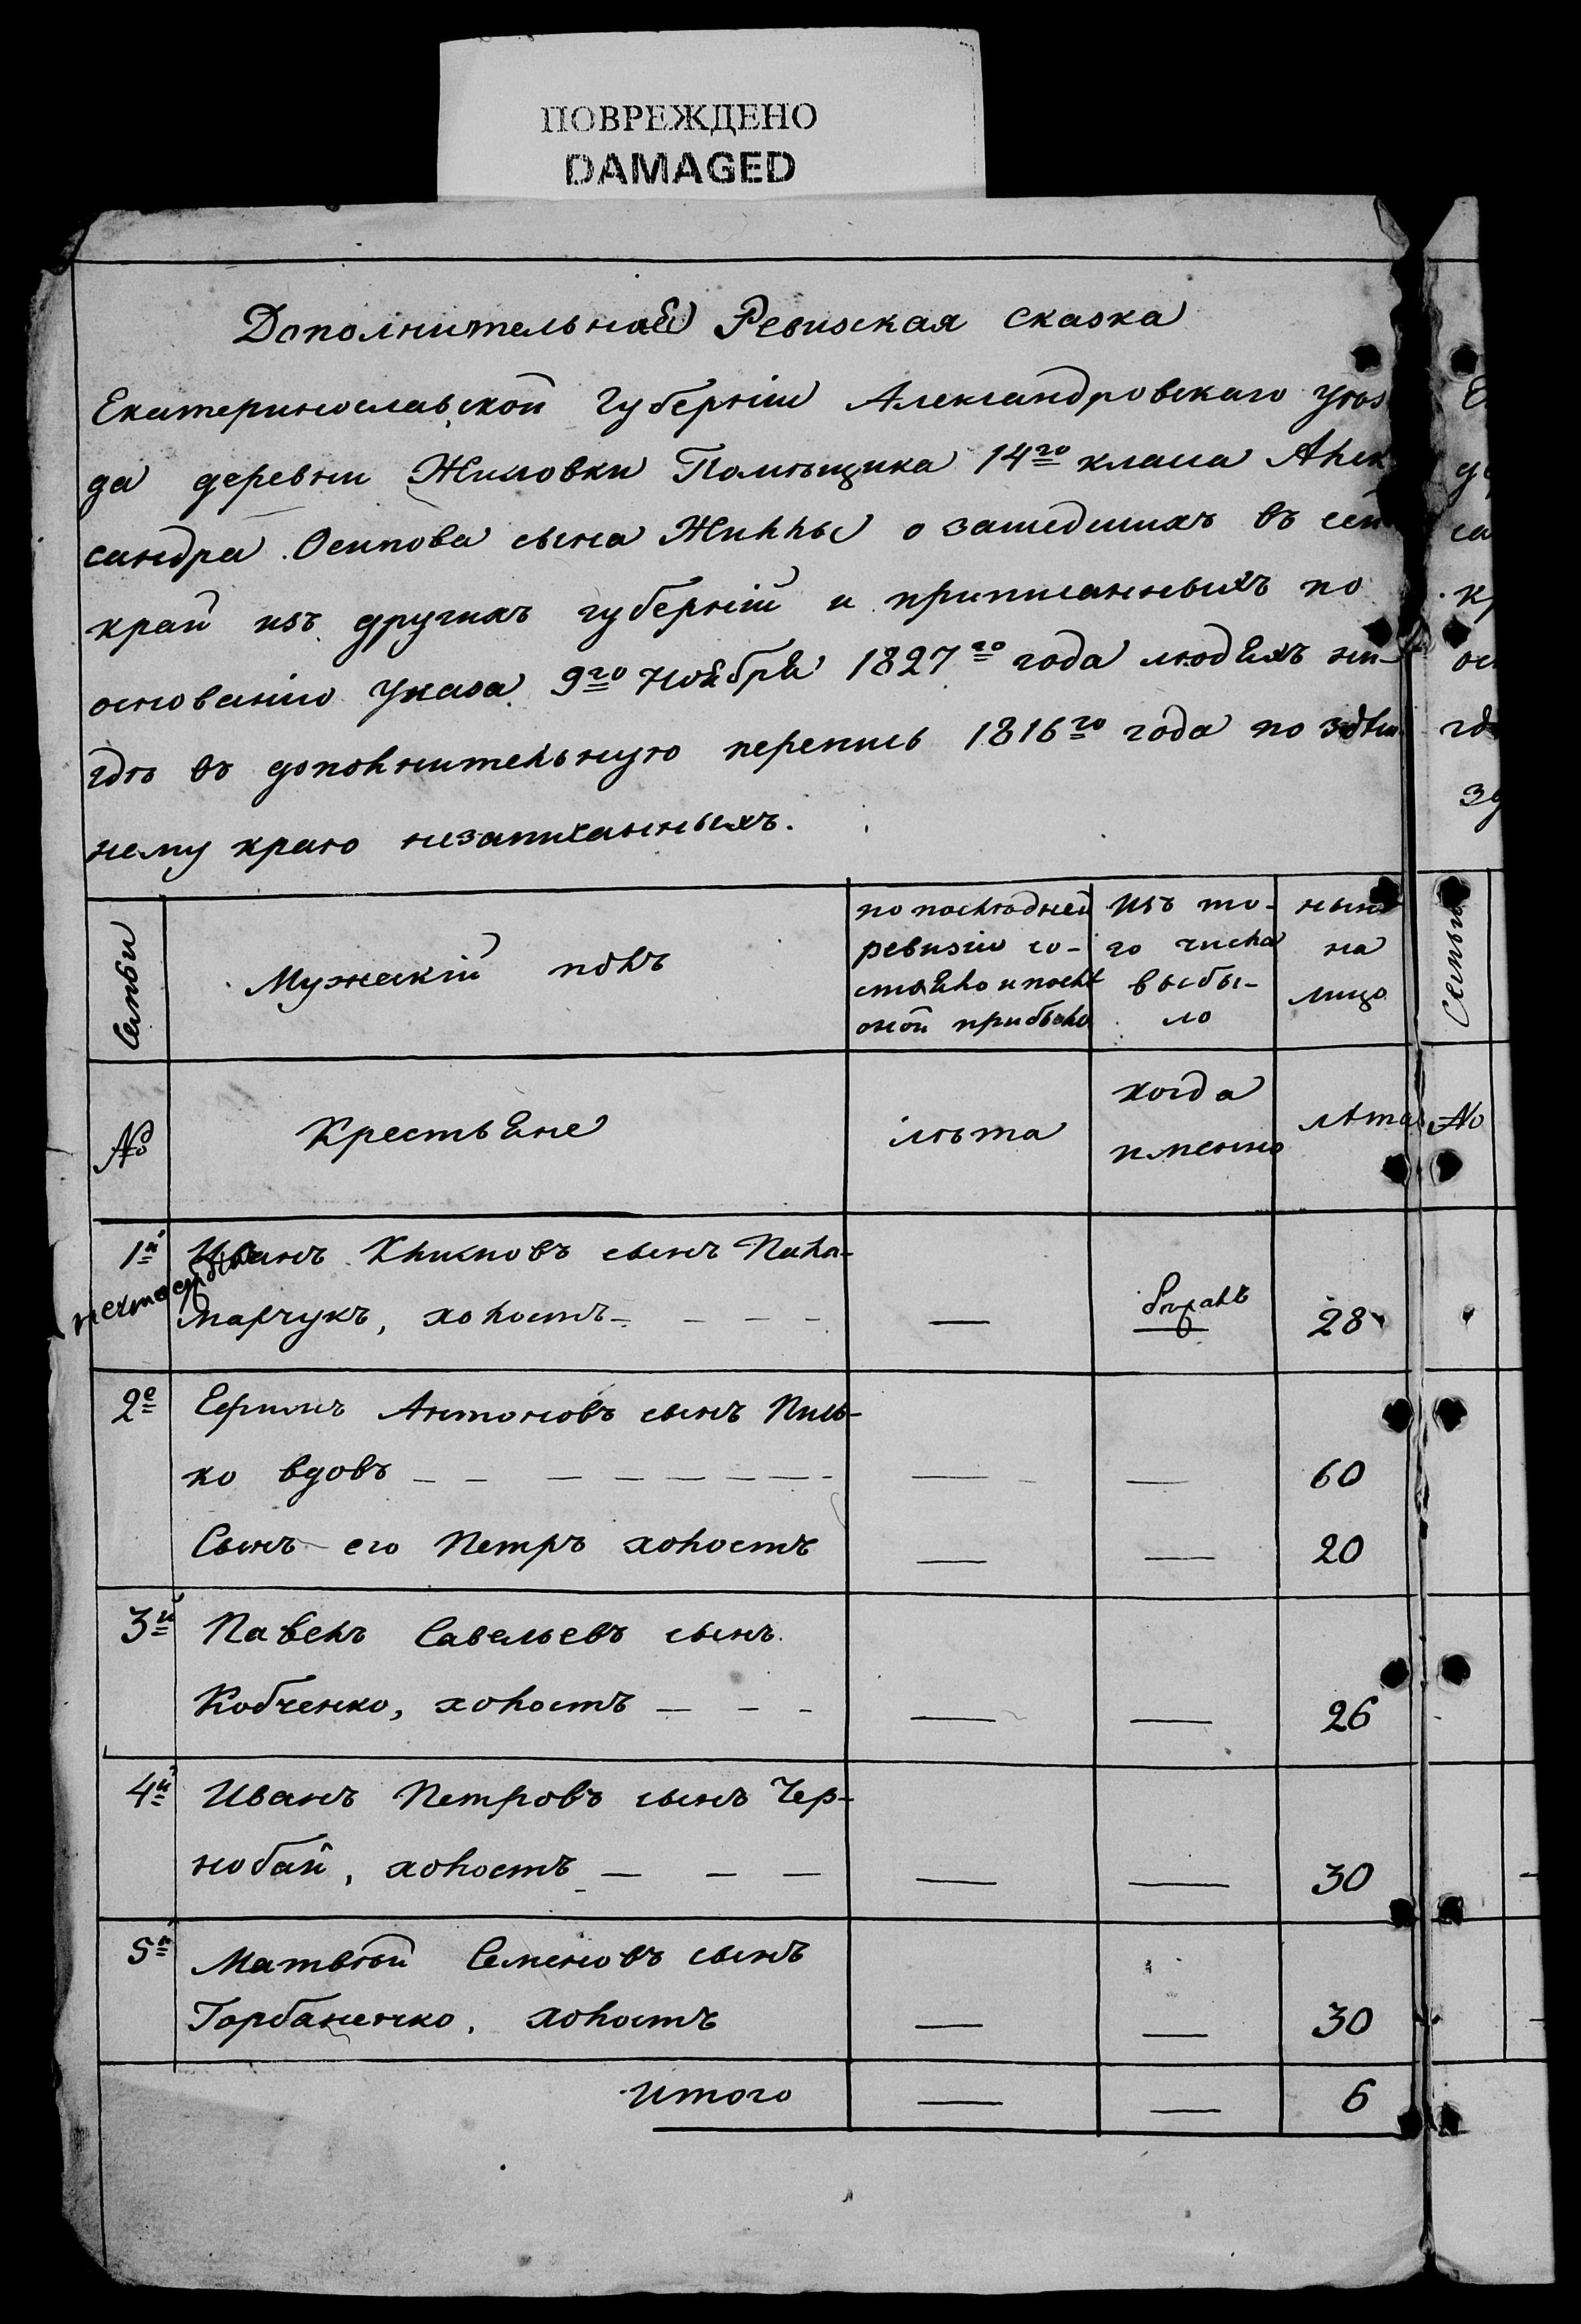 ПОВРЕЖДЕНО
DAMAGED
Дополнительная Ревизская сказка
Екатеринославской Губерніи Александровскаго уѣз
да деревни Жиловки Помѣщика 14го класса Алек
сандра Осипова сына Жиллы о зашедшихъ въ сей
край изъ другихъ губерній и приписанныхъ по
основанію Указа 9го Ноября 1827го года людяхъ ни-
гдѣ въ дополнительную перепись 1816го года по здѣш
нему краю незаписанныхъ.
Семьи
Мужескій полъ
по послѣдней
ревизіи со-
стояло и послѣ
оной прибыло
Изъ то-
го числа
выбы-
ло
нынѣ
на
лицо
Семьи
№
Крестьяне
лѣта
когда
именно
лѣта
№
1й Иванъ Климовъ сынъ Пала-
марчукъ, холостъ — 28
2е Ермилъ Антоновъ сынъ Пиль-
ко вдовъ — — 60
Сынъ его Петръ холостъ — — 20
3й Павелъ Савельевъ сынъ
Кобченко, холостъ — — 26
4й Иванъ Петровъ сынъ Чер-
нобай, холостъ — — 30
5й Матвѣй Семеновъ сынъ
Горбаненко, холостъ — — 30
Итого — — 6